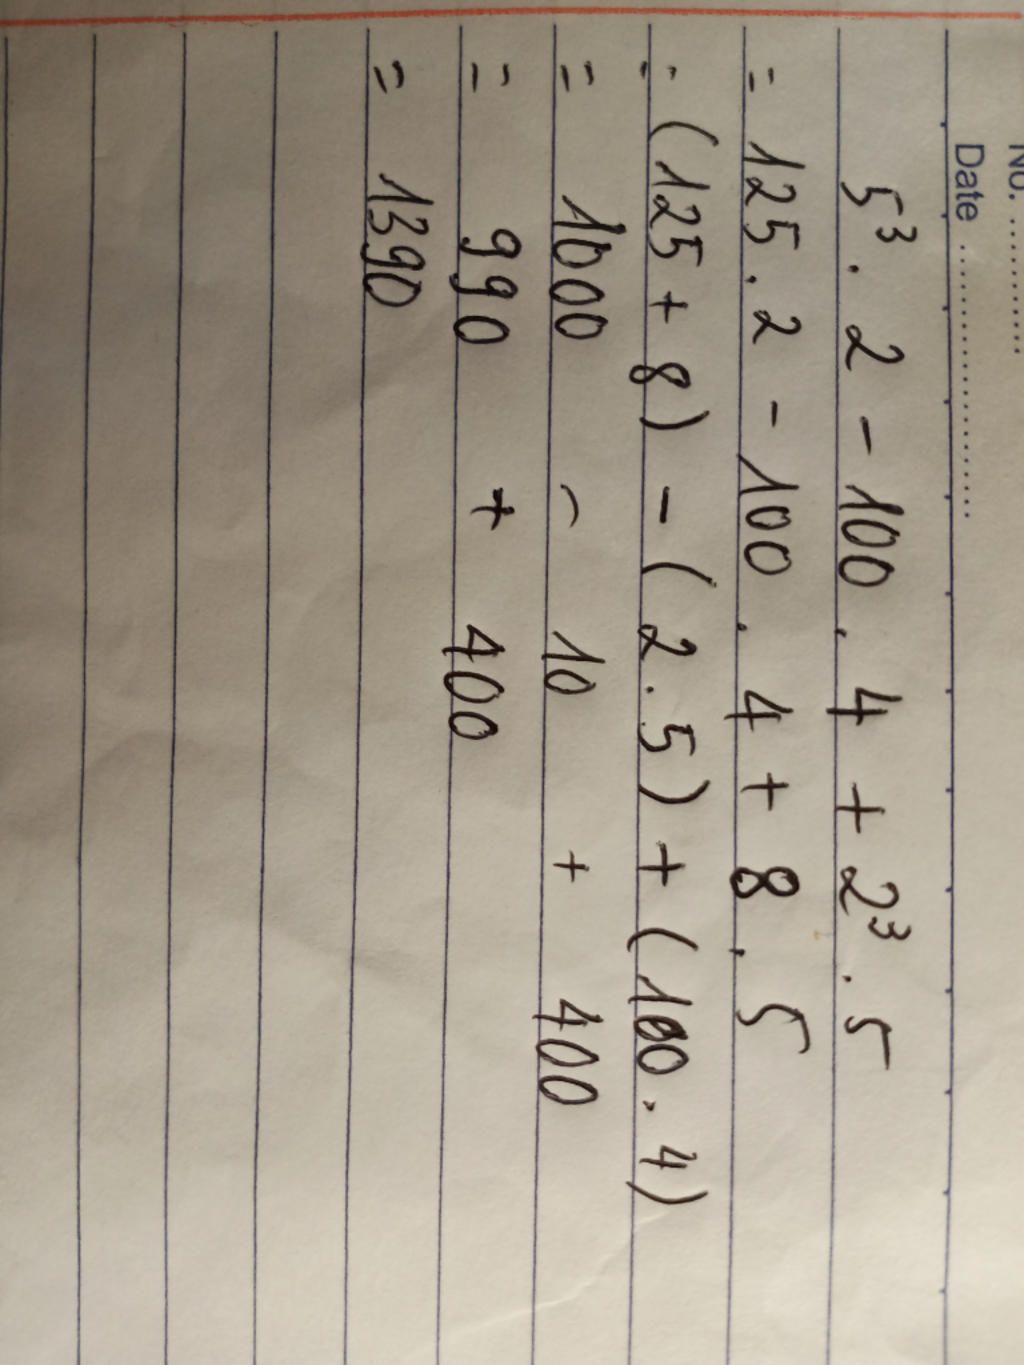 No. ............
Date ........................
5³ . 2 - 100 . 4 + 2³ . 5
= 125 . 2 - 100 . 4 + 8 . 5
= (125 + 8) - (2 . 5) + (100 . 4)
= 1000 - 10 + 400
= 990 + 400
= 1390